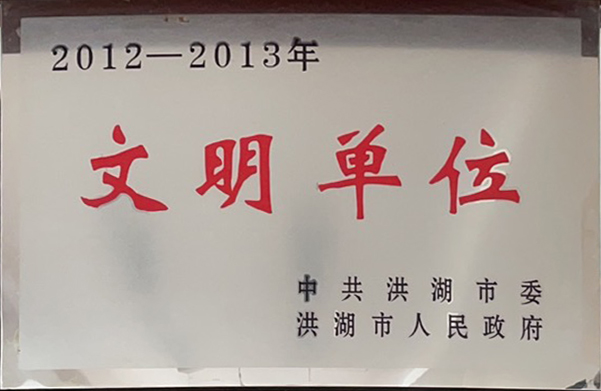 2012—2013年
文明单位
中共洪湖市委
洪湖市人民政府